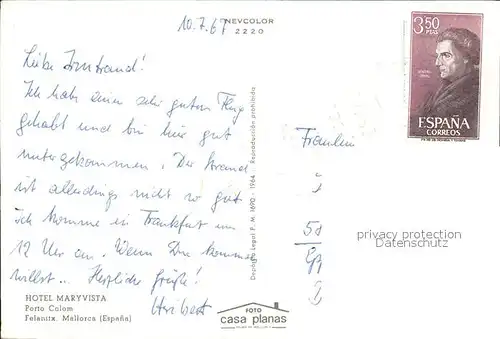 10.7.67
NEVCOLOR
2220
Liebe Irmtraud!
Ich habe einen sehr guten Flug
gehabt und bin hier gut
untergekommen. Der Strand
ist allerdings nicht so gut
Ich komme in Frankfurt um
12 Uhr an. Wenn Du kommen
willst.. Herzliche Grüße!
Heribert
HOTEL MARYVISTA
Porto Colom
Felanitx. Mallorca (España)
Depósito Legal P. M. 1690 - 1964 - Reproducción prohibida
FOTO
casa planas
Fräulein
58
privacy protection
3,50
PTAS
ESPAÑA
CORREOS